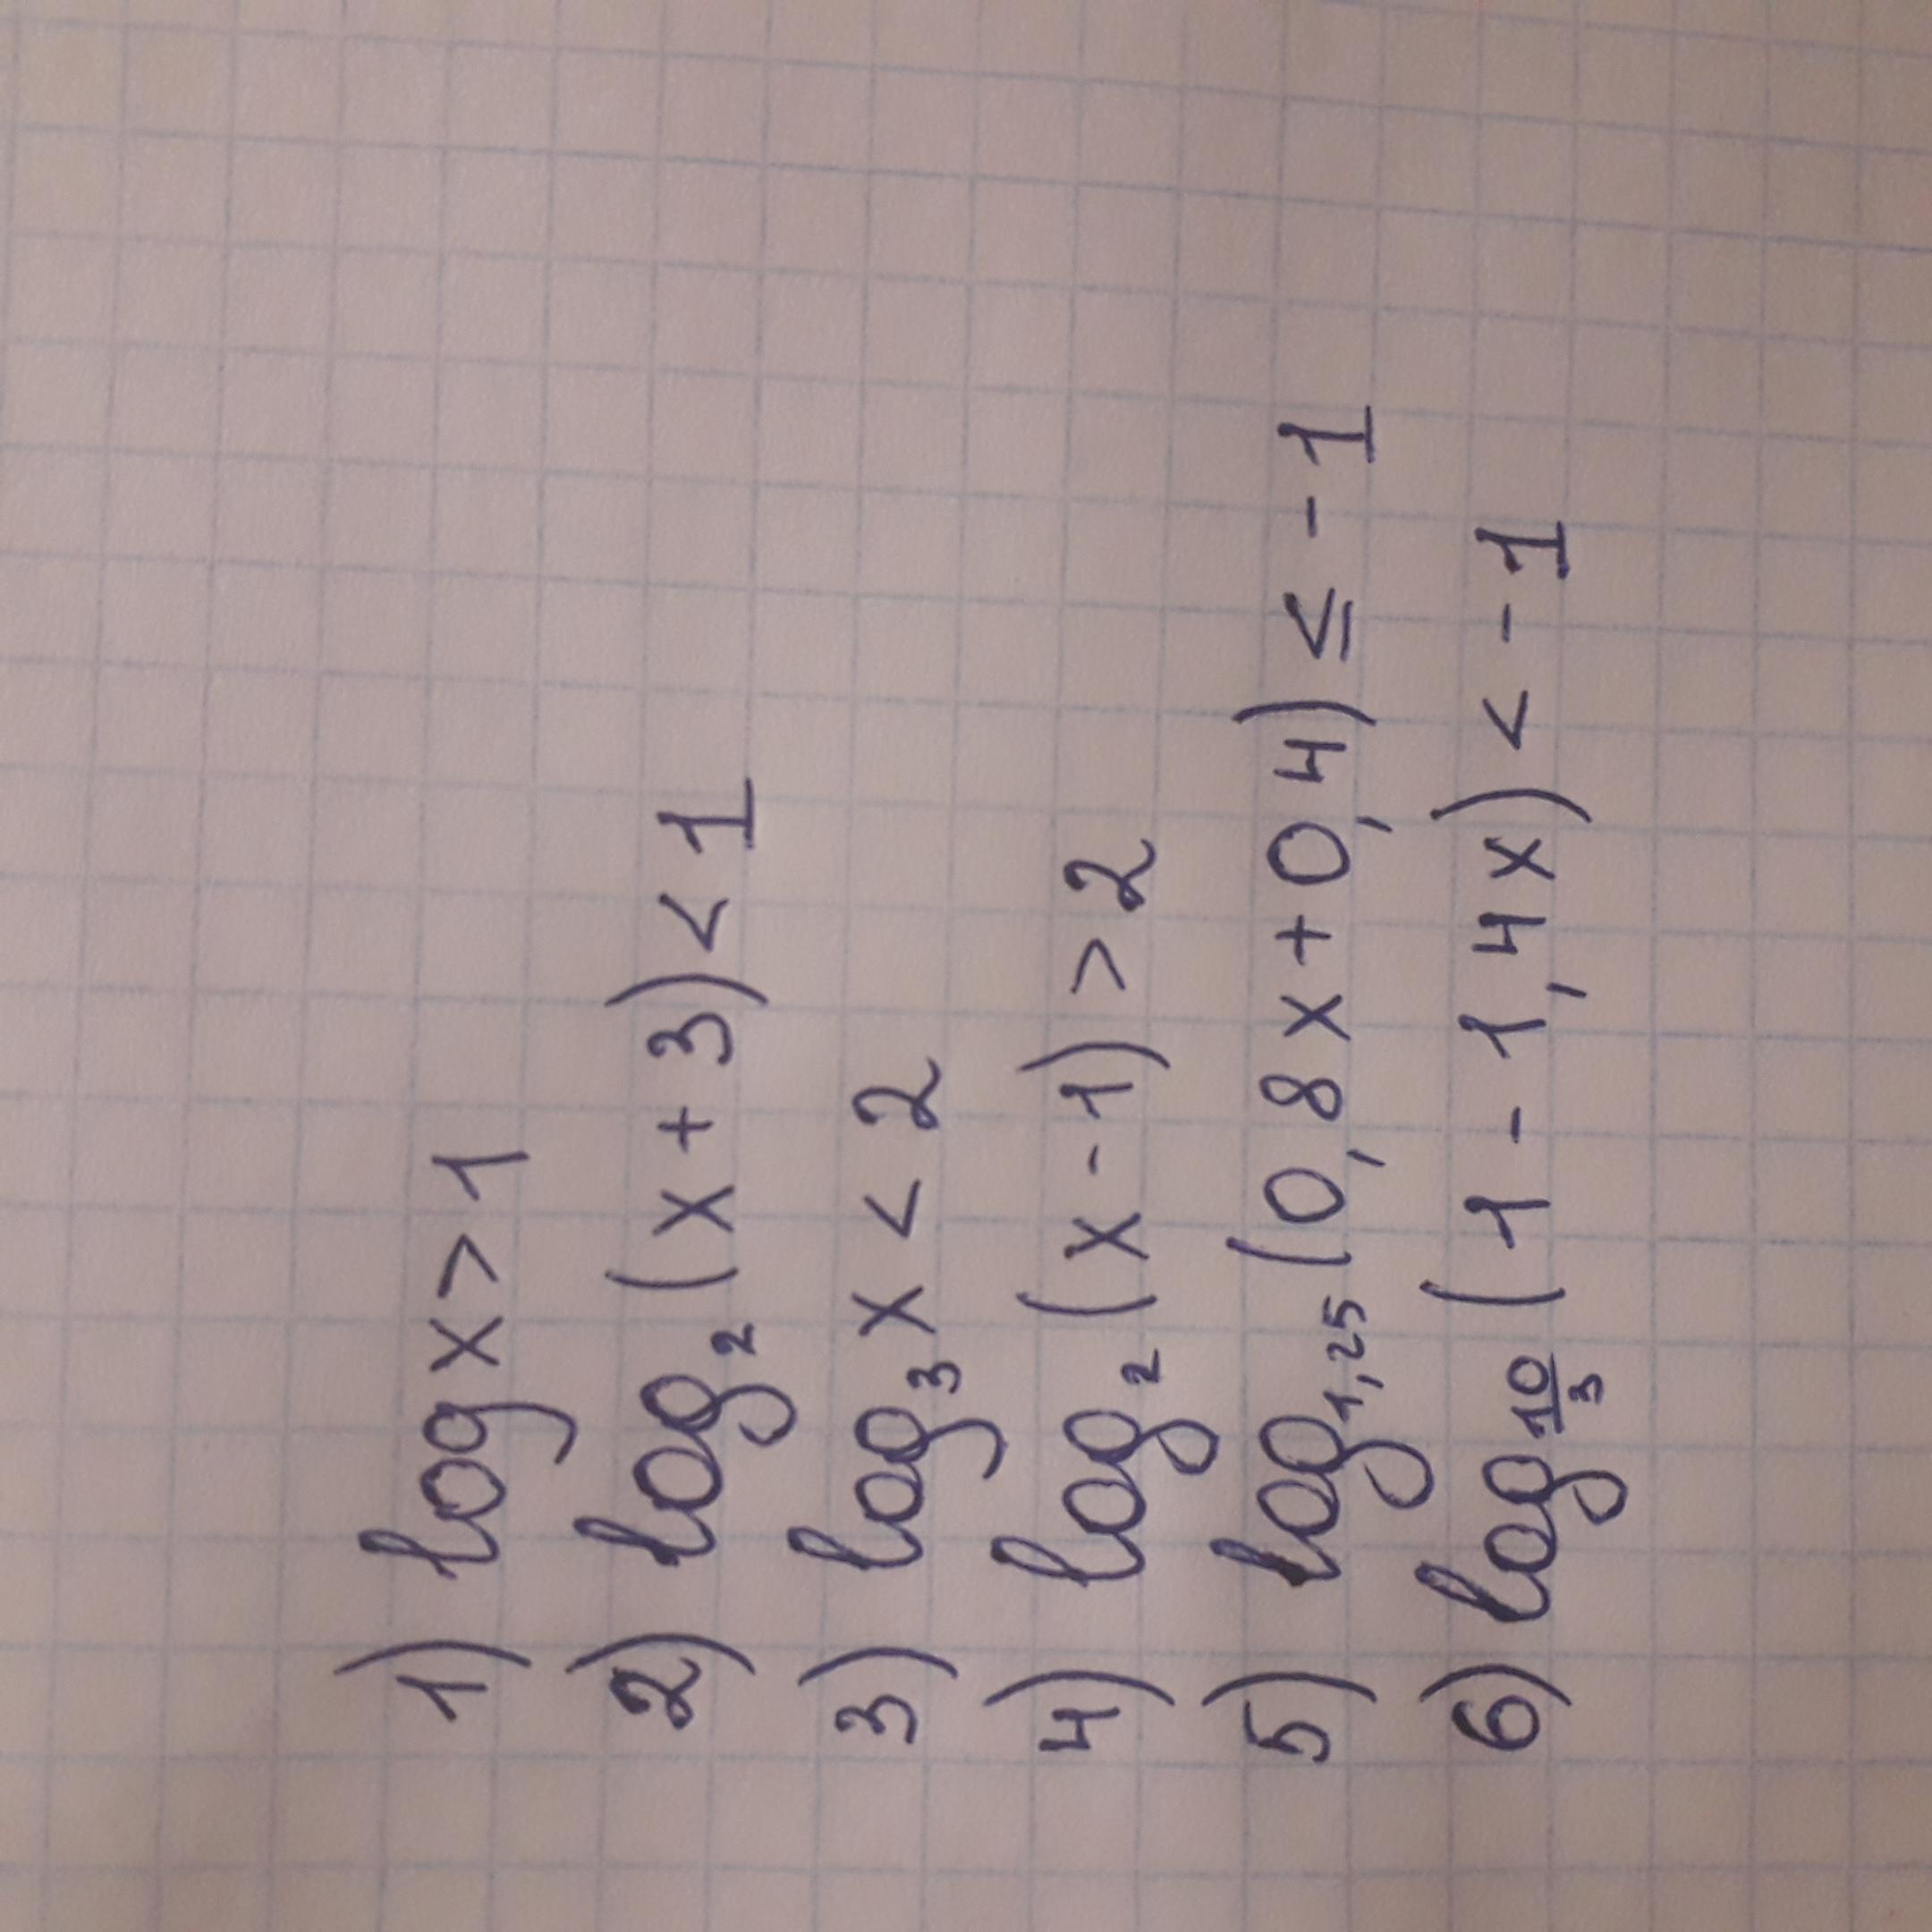 1) log x > 1
2) log₂ (x + 3) < 1
3) log₃ x < 2
4) log₂ (x - 1) > 2
5) log₁,₂₅ (0,8x + 0,4) ≤ - 1
6) log 10/3 (1 - 1,4x) < - 1